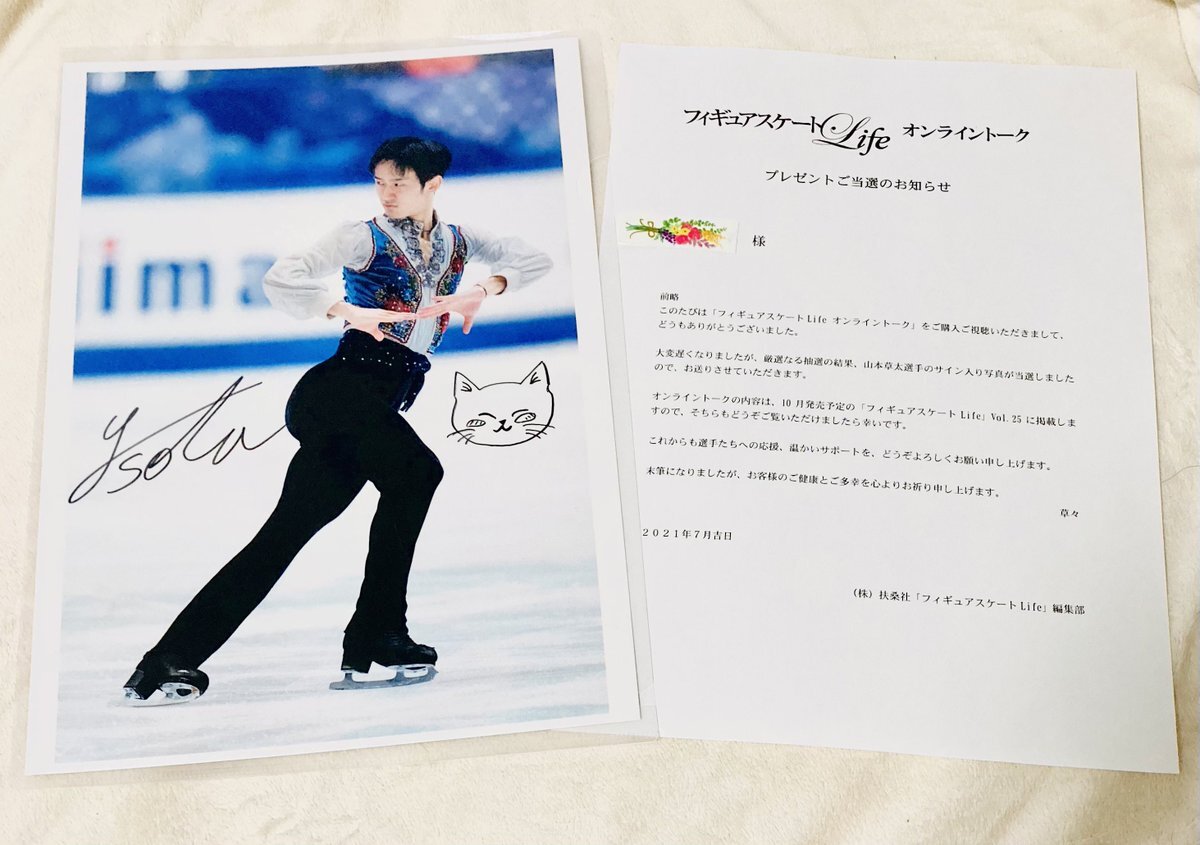 ima
Y sota
フィギュアスケートLife オンライントーク
プレゼントご当選のお知らせ
様
前略
このたびは「フィギュアスケートLife オンライントーク」をご購入ご視聴いただきまして、
どうもありがとうございました。
大変遅くなりましたが、厳選なる抽選の結果、山本草太選手のサイン入り写真が当選しました
ので、お送りさせていただきます。
オンライントークの内容は、10月発売予定の「フィギュアスケートLife」Vol.25 に掲載しま
すので、そちらもどうぞご覧いただけましたら幸いです。
これからも選手たちへの応援、温かいサポートを、どうぞよろしくお願い申し上げます。
末筆になりましたが、お客様のご健康とご多幸を心よりお祈り申し上げます。
草々
２０２１年７月吉日
（株）扶桑社「フィギュアスケートLife」編集部